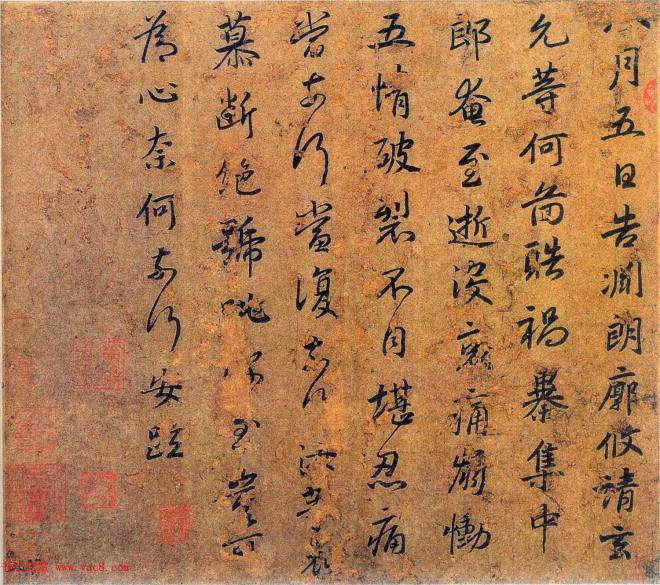 八月五日告淵朗廓攸靖玄
允等何圖酷禍暴集中
郎奄至逝沒哀痛崩慟
五情破裂不自堪忍痛
當奈何當復奈何汝等哀
慕斷絕號咷深至豈可
為心奈何奈何安疏
www.vac8.com